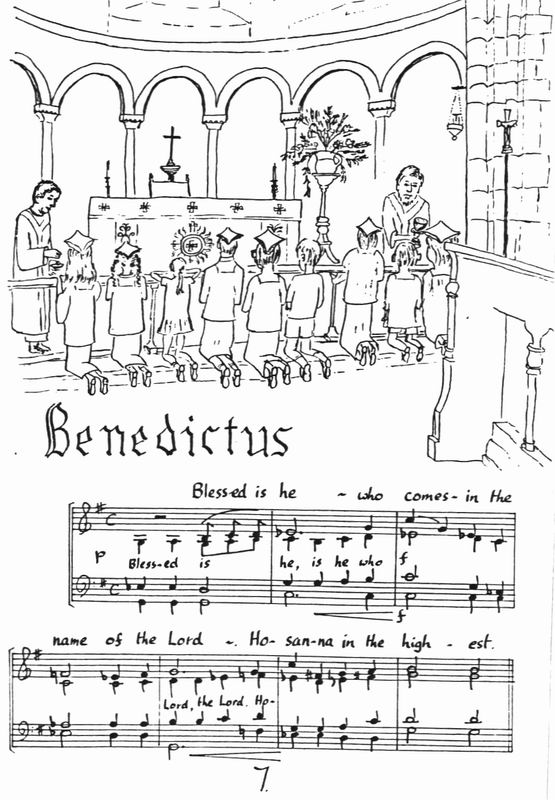 Benedictus
Bless-ed is he - who comes - in the
p Bless-ed is he, is he who f
f
name of the Lord -. Ho- san-na in the high - est.
Lord, the Lord. Ho-
7.